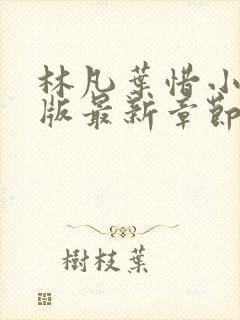 林凡葉惜小
版最新章節
樹枝葉